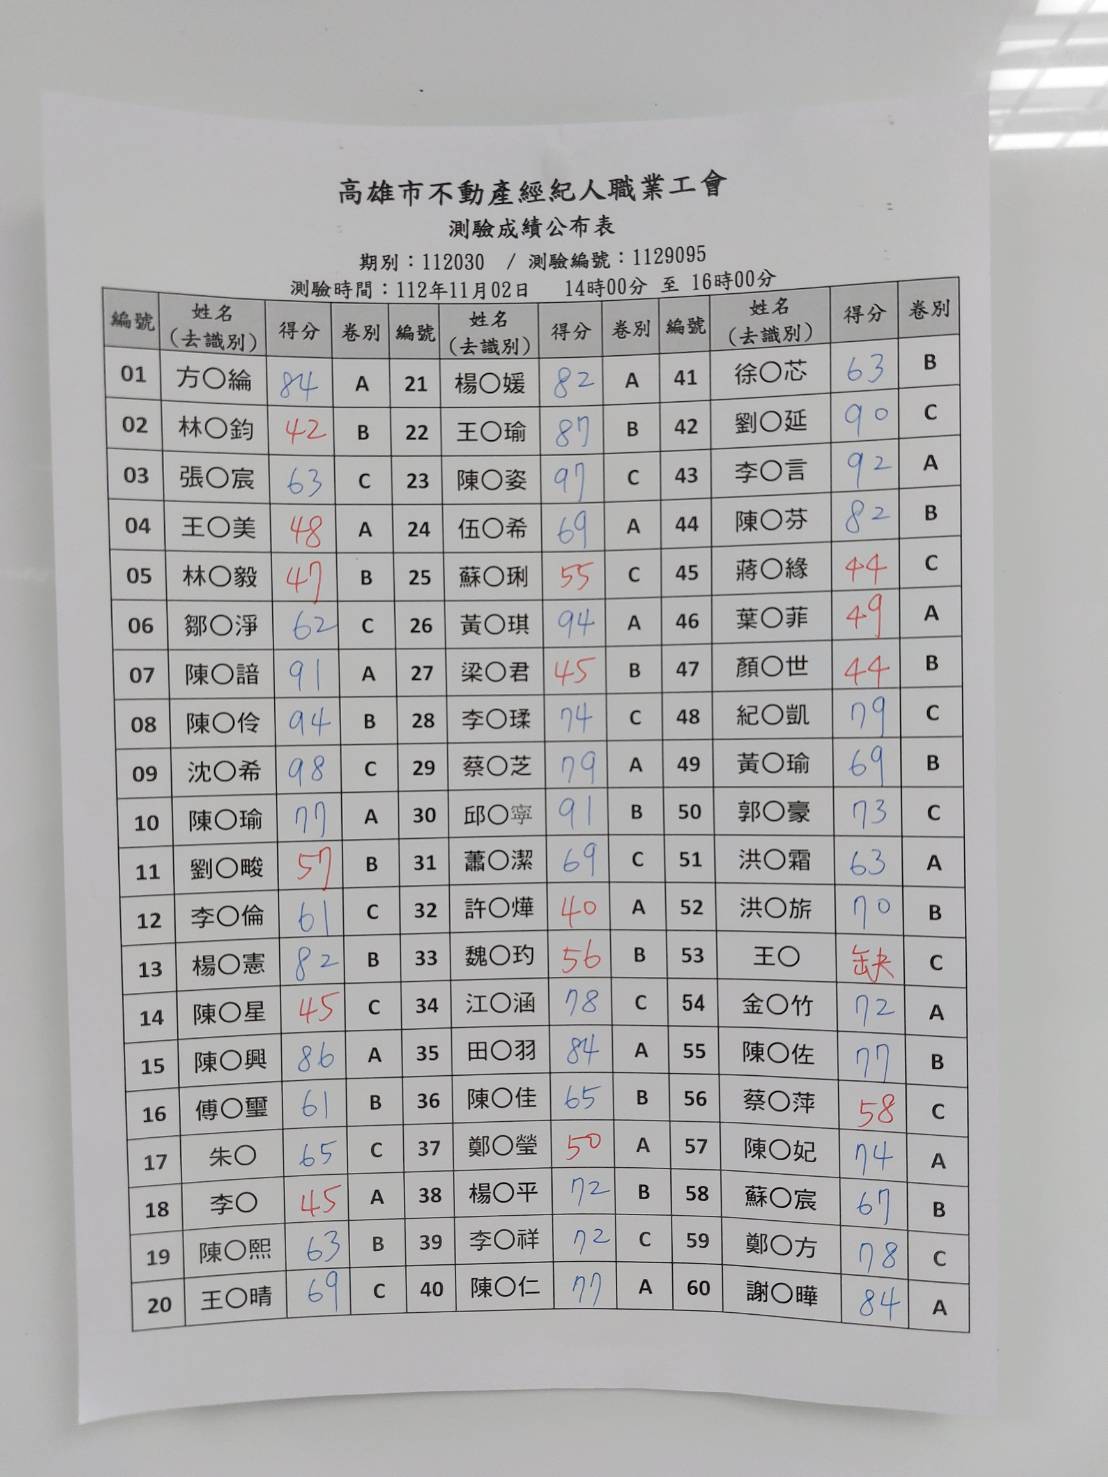 高雄市不動產經紀人職業工會
測驗成績公布表
期別：112030 / 測驗編號：1129095
測驗時間：112年11月02日 14時00分 至 16時00分
編號 姓名(去識別) 得分 卷別 編號 姓名(去識別) 得分 卷別 編號 姓名(去識別) 得分 卷別
01 方〇綸 84 A 21 楊〇媛 82 A 41 徐〇芯 63 B
02 林〇鈞 42 B 22 王〇瑜 87 B 42 劉〇延 90 C
03 張〇宸 63 C 23 陳〇姿 97 C 43 李〇言 92 A
04 王〇美 48 A 24 伍〇希 69 A 44 陳〇芬 82 B
05 林〇毅 47 B 25 蘇〇琍 55 C 45 蔣〇緣 44 C
06 鄒〇淨 62 C 26 黃〇琪 94 A 46 葉〇菲 49 A
07 陳〇諳 91 A 27 梁〇君 45 B 47 顏〇世 44 B
08 陳〇伶 94 B 28 李〇瑈 74 C 48 紀〇凱 79 C
09 沈〇希 98 C 29 蔡〇芝 79 A 49 黃〇瑜 69 B
10 陳〇瑜 77 A 30 邱〇寧 91 B 50 郭〇豪 73 C
11 劉〇畯 57 B 31 蕭〇潔 69 C 51 洪〇霜 63 A
12 李〇倫 61 C 32 許〇燁 40 A 52 洪〇旂 70 B
13 楊〇憲 82 B 33 魏〇玓 56 B 53 王〇 缺 C
14 陳〇星 45 C 34 江〇涵 78 C 54 金〇竹 72 A
15 陳〇興 86 A 35 田〇羽 84 A 55 陳〇佐 77 B
16 傅〇璽 61 B 36 陳〇佳 65 B 56 蔡〇萍 58 C
17 朱〇 65 C 37 鄭〇瑩 50 A 57 陳〇妃 74 A
18 李〇 45 A 38 楊〇平 72 B 58 蘇〇宸 67 B
19 陳〇熙 63 B 39 李〇祥 72 C 59 鄭〇方 78 C
20 王〇晴 69 C 40 陳〇仁 77 A 60 謝〇曄 84 A